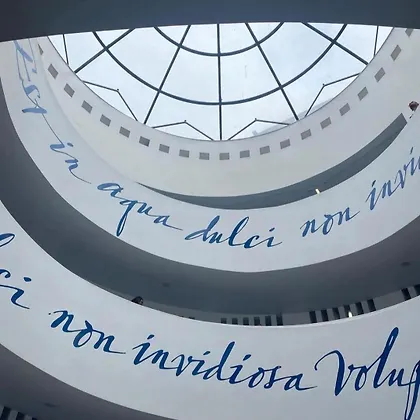 Est in aqua dulci non invi
ci non invidiosa volup